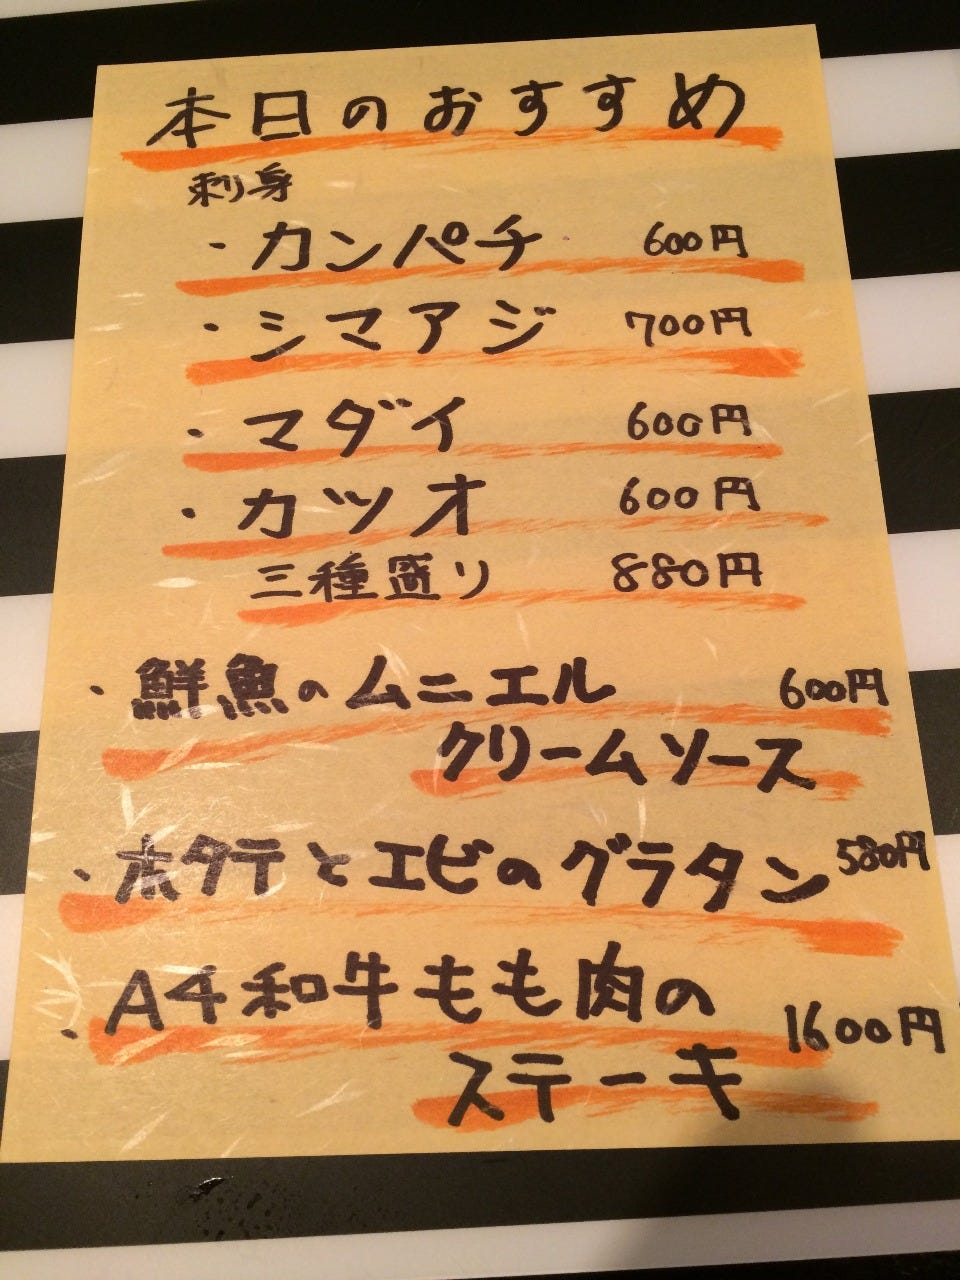 本日のおすすめ
刺身
・カンパチ 600円
・シマアジ 700円
・マダイ 600円
・カツオ 600円
三種盛り 880円
・鮮魚のムニエル 600円
クリームソース
・ホタテとエビのグラタン 580円
・A4和牛もも肉の 1600円
ステーキ